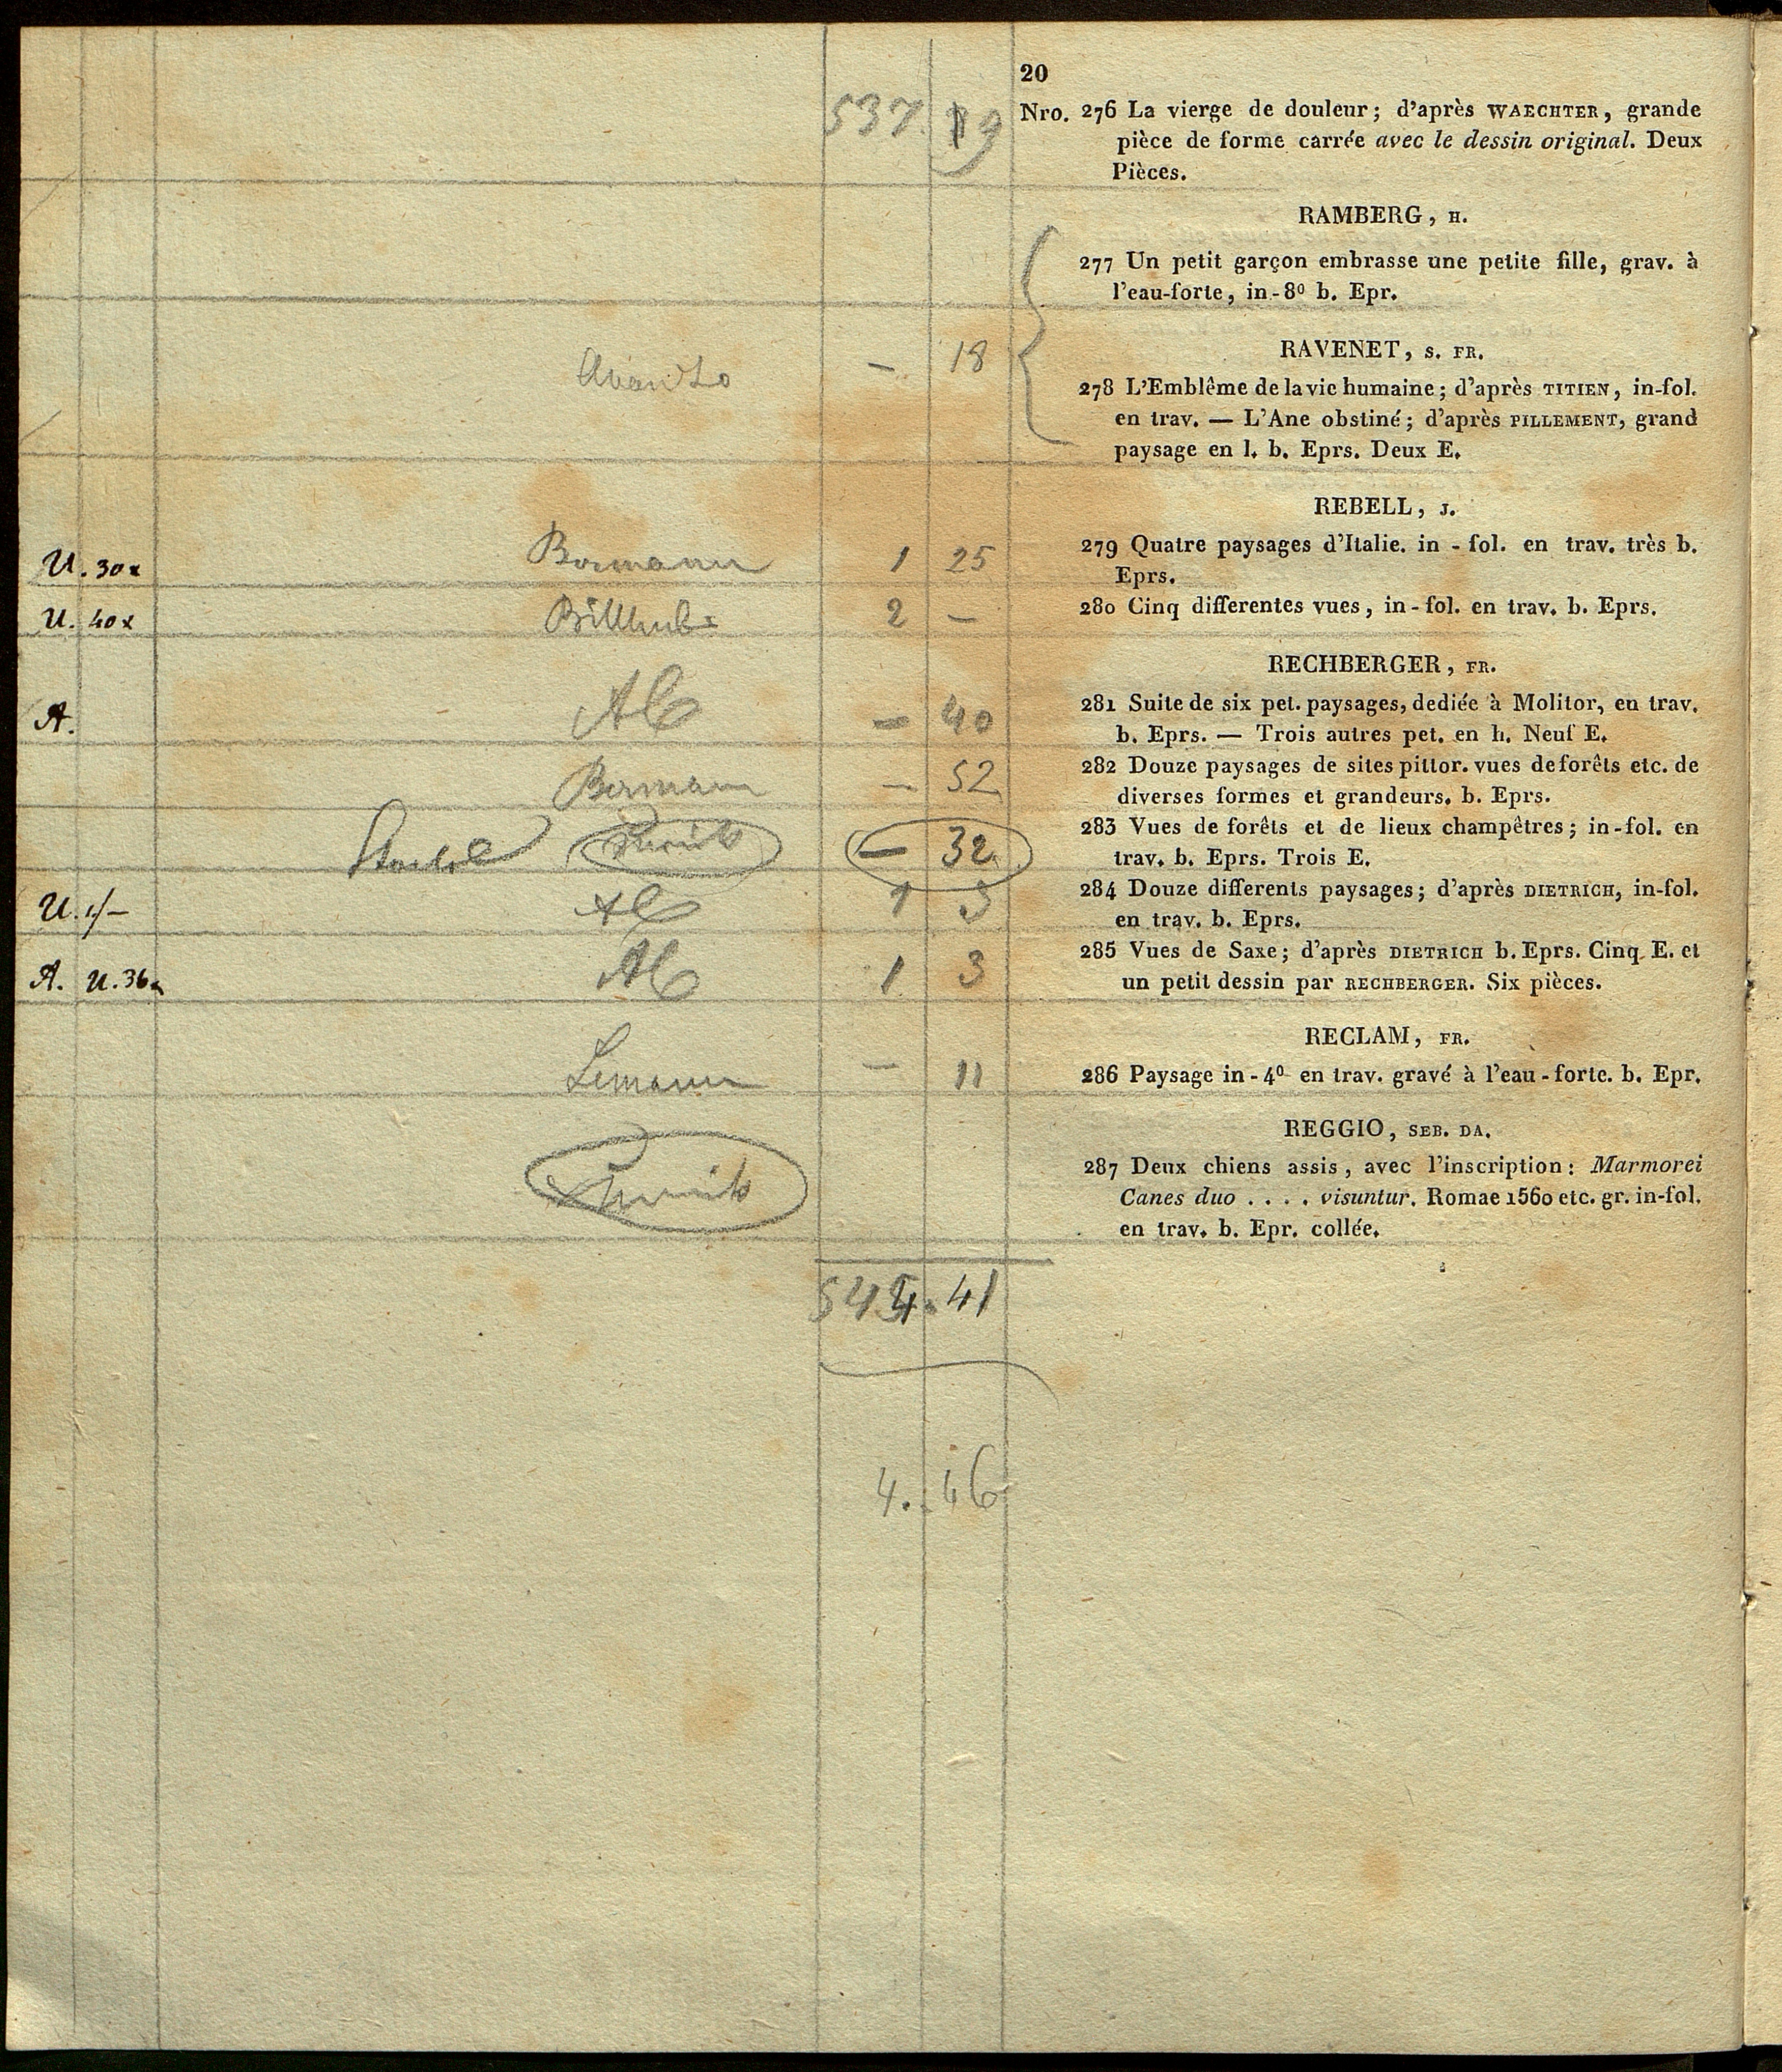 20
537. 19
Nro. 276 La vierge de douleur; d'après WAECHTER, grande
pièce de forme carrée avec le dessin original. Deux
Pièces.
RAMBERG, H.
277 Un petit garçon embrasse une petite fille, grav. à
l'eau-forte, in-8º b. Epr.
RAVENET, S. FR.
— 18
278 L'Emblême de la vie humaine; d'après TITIEN, in-fol.
en trav. — L'Ane obstiné; d'après PILLEMENT, grand
paysage en l. b. Eprs. Deux E.
REBELL, J.
U. 30x Bormann 1 25
279 Quatre paysages d'Italie. in - fol. en trav. très b.
Eprs.
U. 40x 2 —
280 Cinq differentes vues, in - fol. en trav. b. Eprs.
RECHBERGER, FR.
A. — 40
281 Suite de six pet. paysages, dediée à Molitor, en trav.
b. Eprs. — Trois autres pet. en h. Neuf E.
Bormann — 52
282 Douze paysages de sites pittor. vues de forêts etc. de
diverses formes et grandeurs. b. Eprs.
— 32
283 Vues de forêts et de lieux champêtres; in-fol. en
trav. b. Eprs. Trois E.
U. 1 3
284 Douze differents paysages; d'après DIETRICH, in-fol.
en trav. b. Eprs.
A. U. 36x 1 3
285 Vues de Saxe; d'après DIETRICH b. Eprs. Cinq E. et
un petit dessin par RECHBERGER. Six pièces.
RECLAM, FR.
— 11
286 Paysage in - 4º en trav. gravé à l'eau - forte. b. Epr.
REGGIO, SEB. DA.
287 Deux chiens assis, avec l'inscription: Marmorei
Canes duo . . . . visuntur. Romae 1560 etc. gr. in-fol.
en trav. b. Epr. collée.
544. 41
4. 46